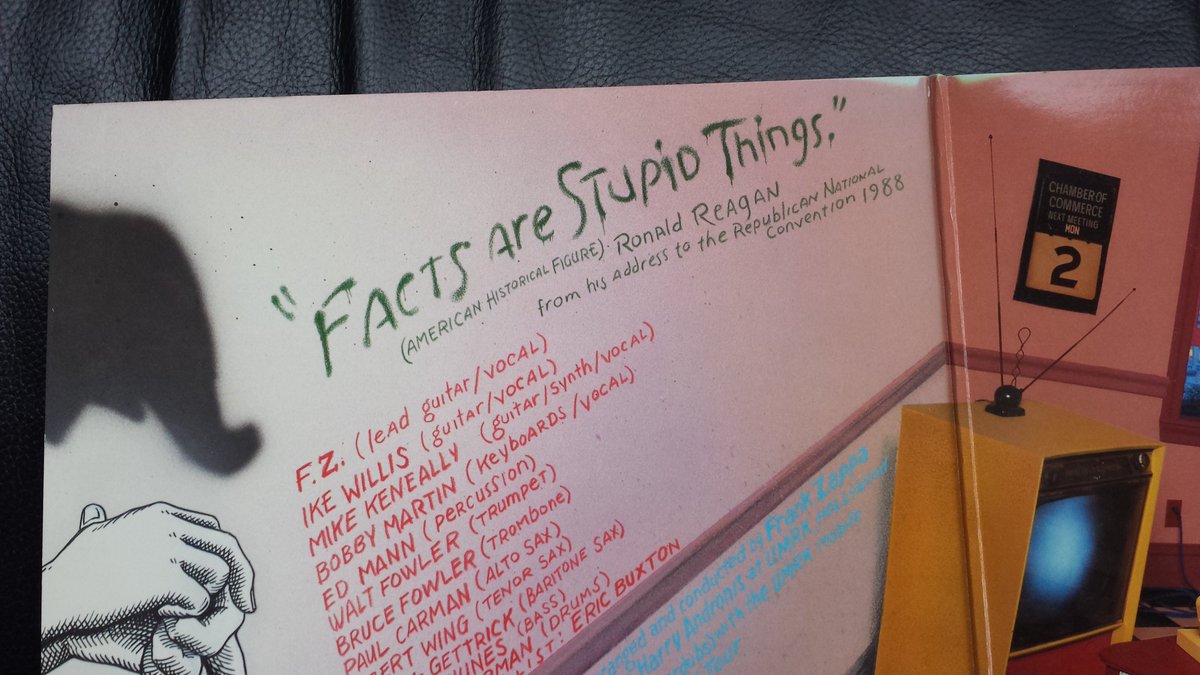 "FACTS are Stupid Things."
(AMERICAN HISTORICAL FIGURE) Ronald Reagan
from his address to the Republican National
Convention 1988
F.Z. (lead guitar/vocal)
IKE WILLIS (guitar/vocal)
MIKE KENEALLY (guitar/synth/vocal)
BOBBY MARTIN (keyboards/vocal)
ED MANN (percussion)
WALT FOWLER (trumpet)
BRUCE FOWLER (trombone)
PAUL CARMAN (ALTO SAX)
WING (TENOR SAX)
GETTRICK (BARITONE SAX)
(BASS)
(DRUMS)
ERIC BUXTON
and conducted by Frank Zappa
"Harry Andronis at UMRK
with the UMRK mobile
Tour
CHAMBER OF
COMMERCE
NEXT MEETING
MON
2